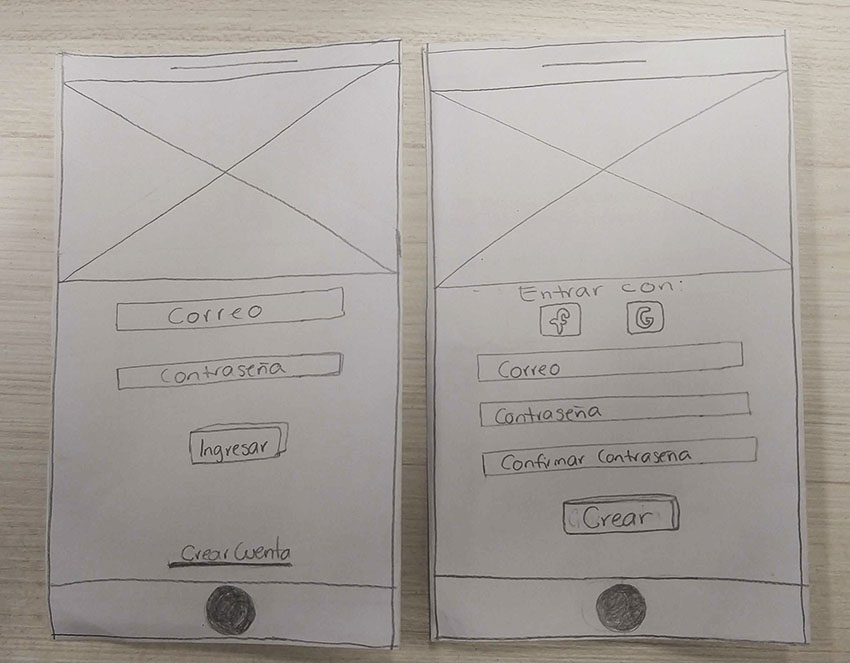 Correo
Contraseña
Ingresar
Crear Cuenta
Entrar con:
f G
Correo
Contraseña
Confirmar Contraseña
Crear